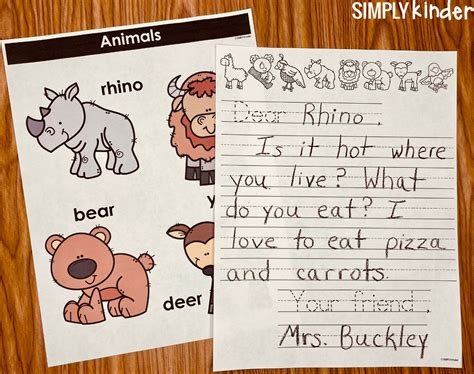 SIMPLY kinder
Animals
rhino
y
bear
deer
Dear Rhino,
Is it hot where
you live? What
do you eat? I
love to eat pizza
and carrots.
Your friend,
Mrs. Buckley